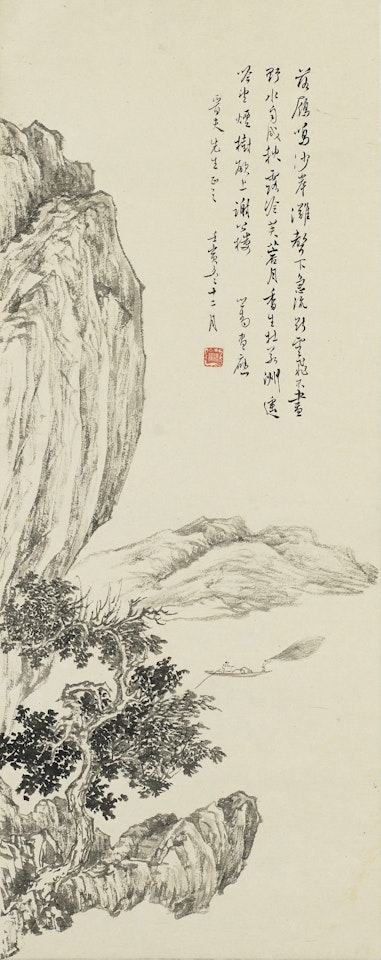 落雁鳴沙岸灘聲下急流斷雲飛不盡
野水自成秋露冷芙蓉月香生杜若洲遠
煙樹欲上謝公樓 溥儒畫應
晉夫先生正之 壬寅冬十二月